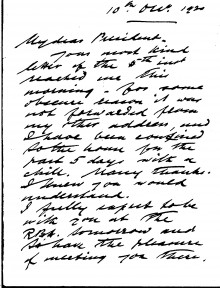 10th Decr. 192
My dear President.
Your most kind
letter of the 8th inst
reached me this
morning - for some
obscure reason it was
not forwarded from
my other address and
I have been confined
to the house for the
past 5 days with a
chill. Many thanks.
I knew you would
understand.
I fully expect to be
with you at the
R.B.A. tomorrow and
to have the pleasure
of meeting you there.